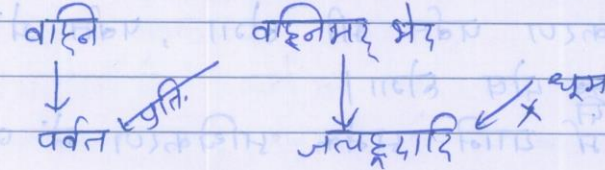 वह्नि वह्निमद् भेद
धूम
पर्वत जलहृदादि